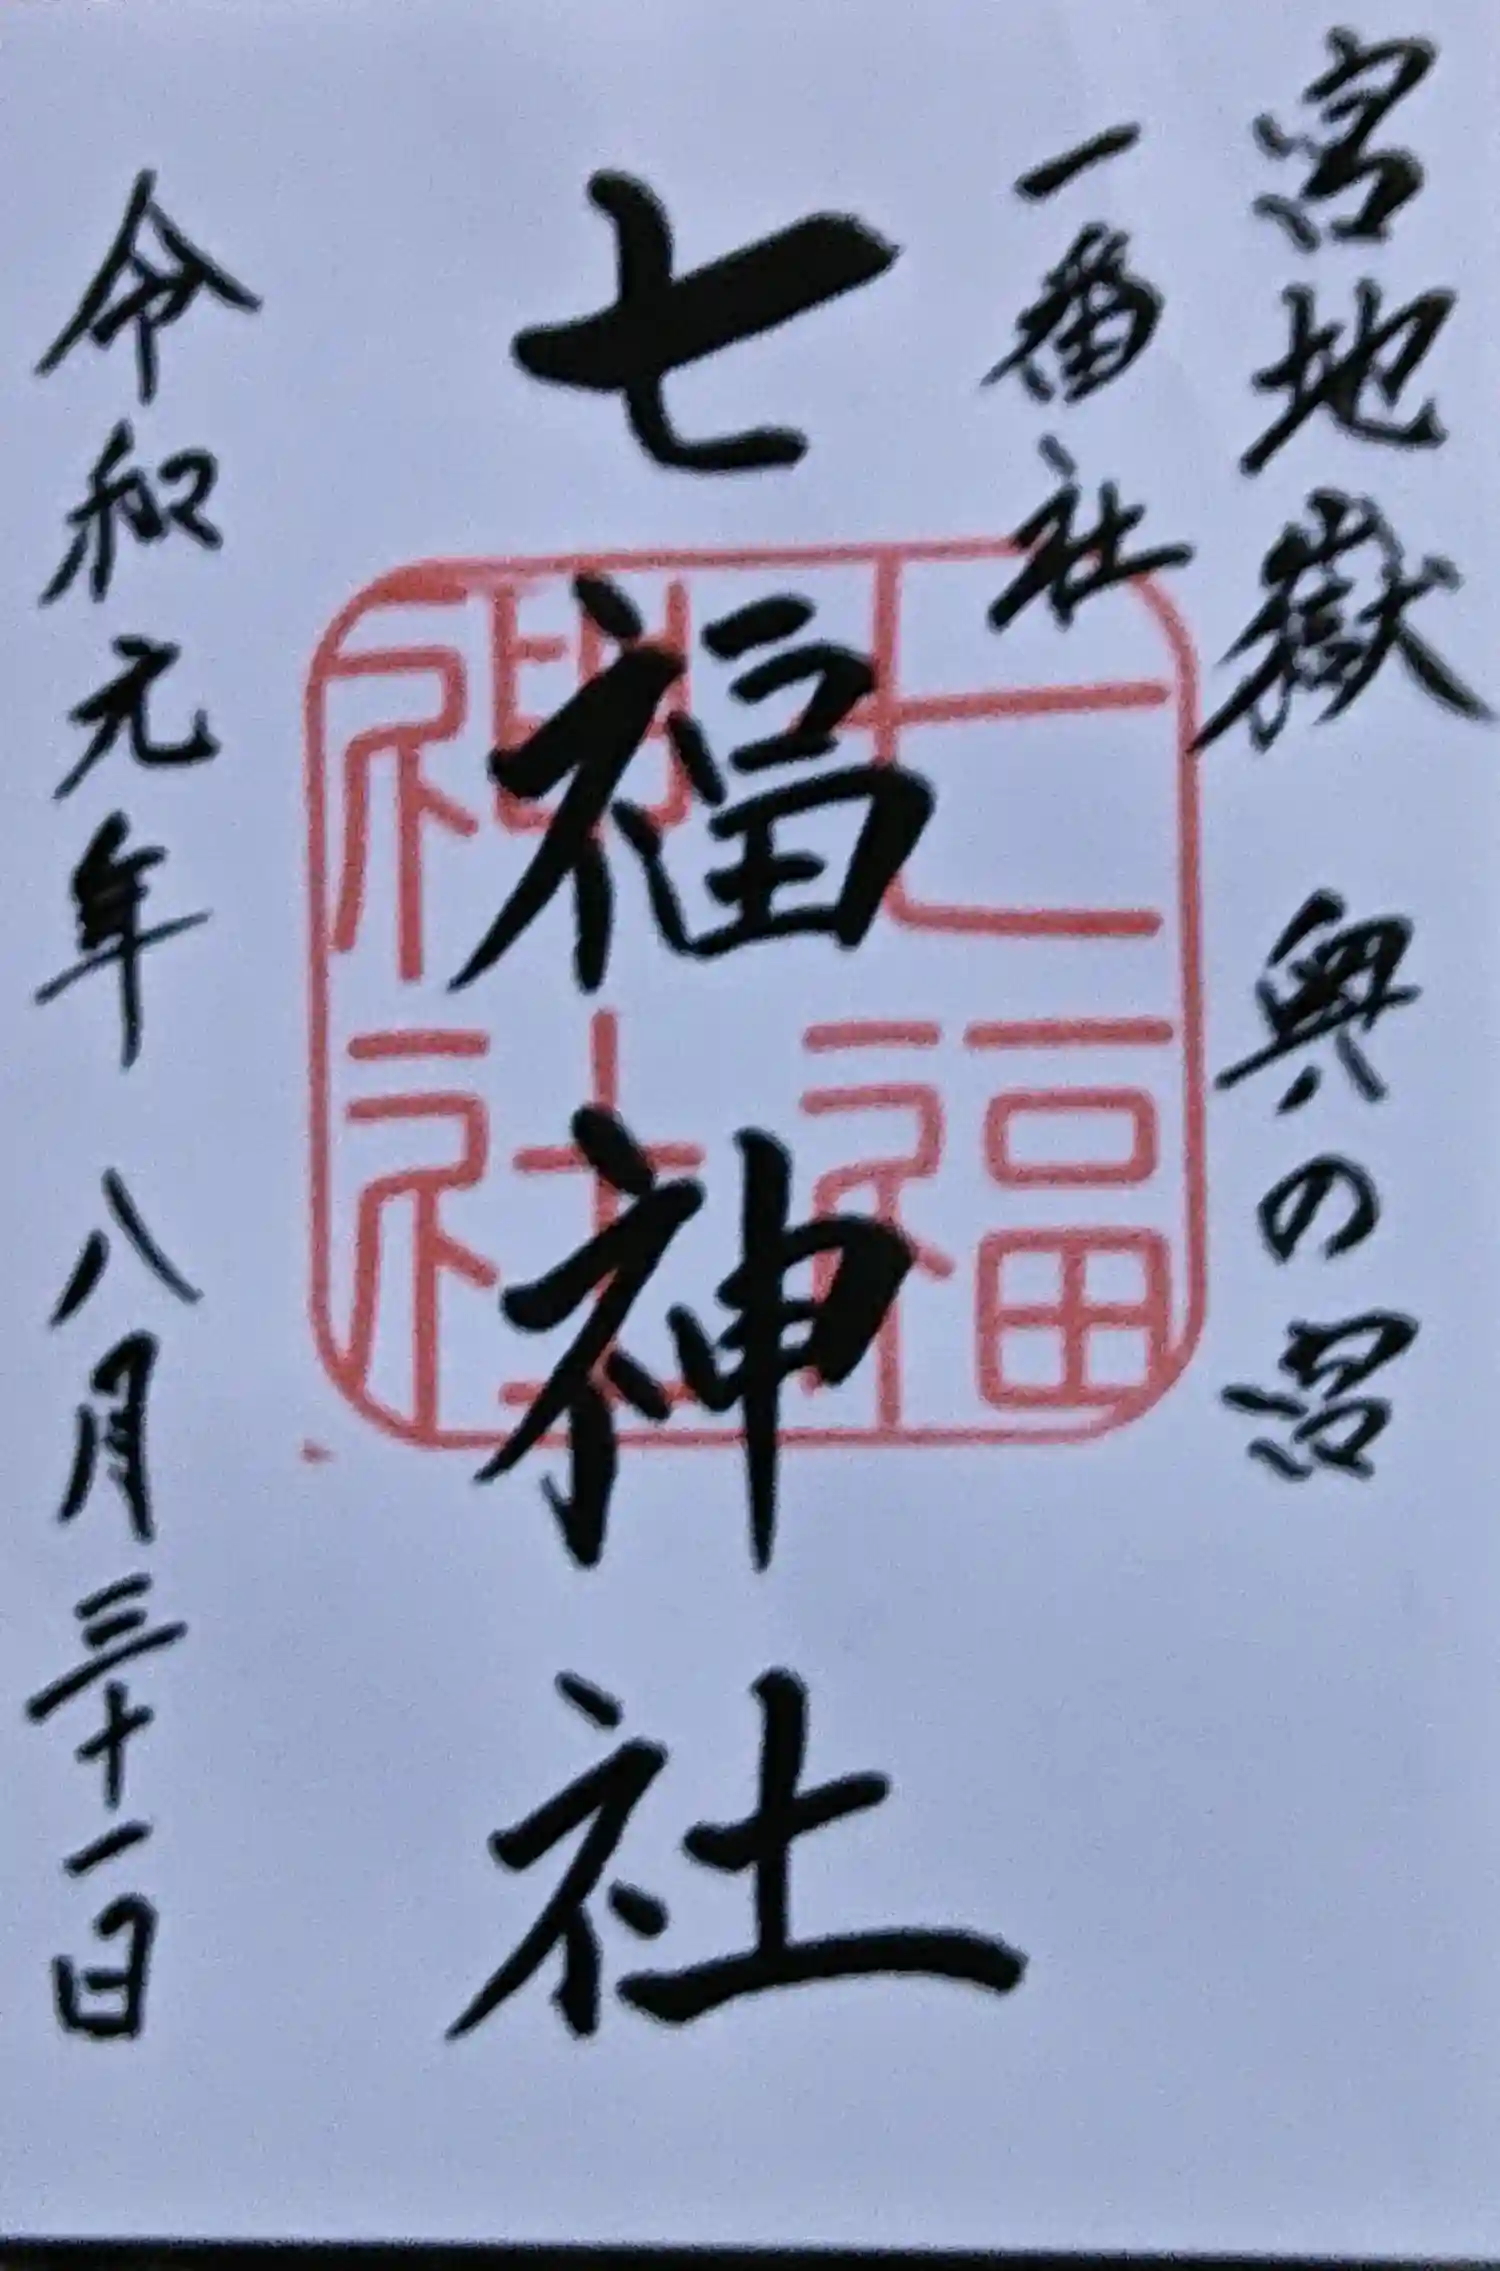 宮地嶽 奥の宮
一番社
七福神社
七福神社
令和元年 八月三十一日